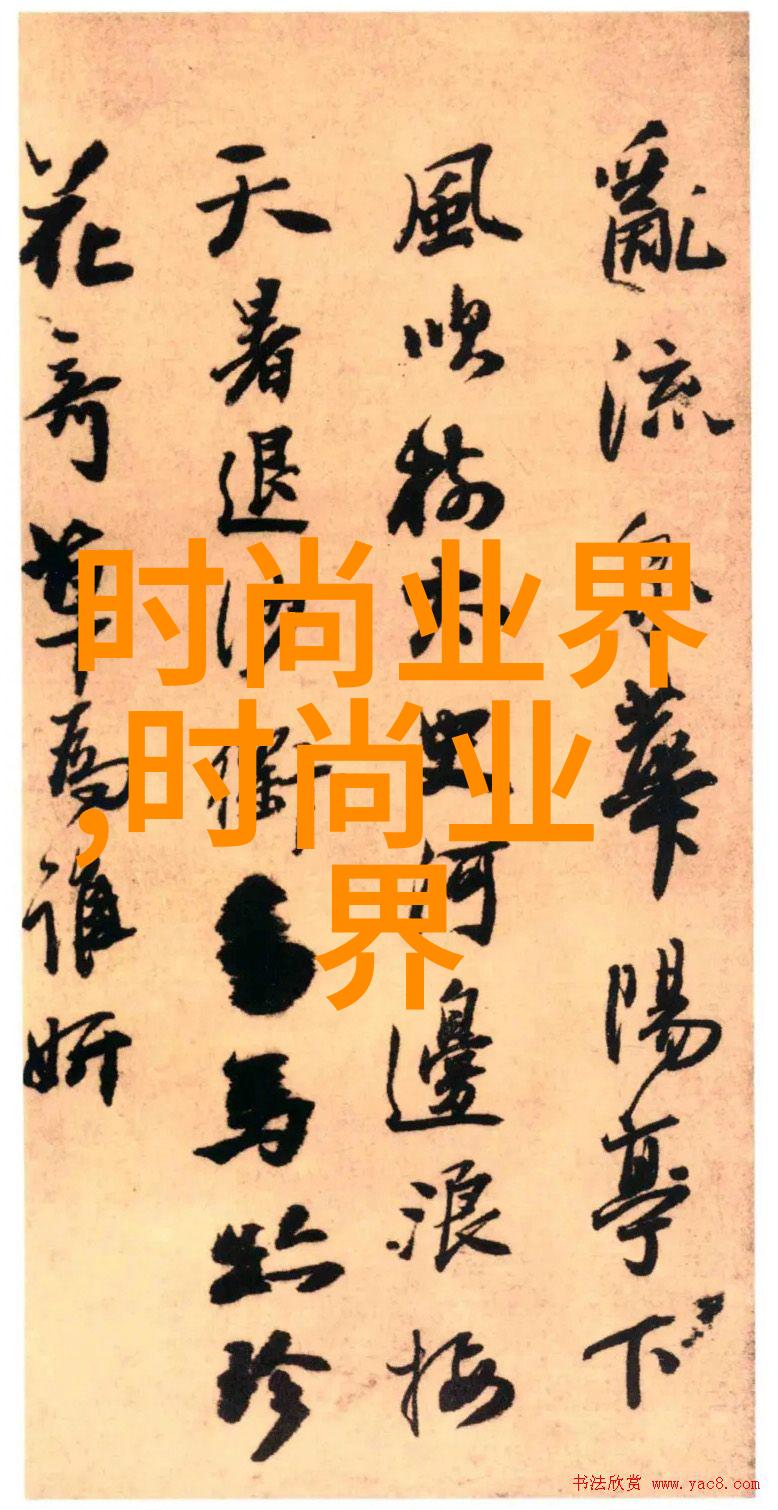 亂流泉華陽亭下
風吹樹木□□何邊浪接
天暑退沙衛馬點珍
花奇草為誰妍
时尚业界
,时尚业
界
书法欣赏 www.yac8.com